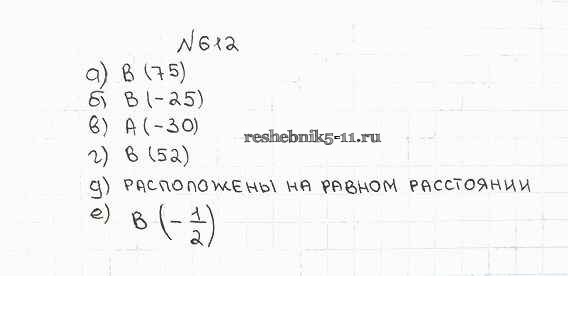 №612
а) В (75)
б) В (-25)
в) А (-30)
reshebnik5-11.ru
г) В (52)
д) РАСПОЛОЖЕНЫ НА РАВНОМ РАССТОЯНИИ
е) В (-1/2)